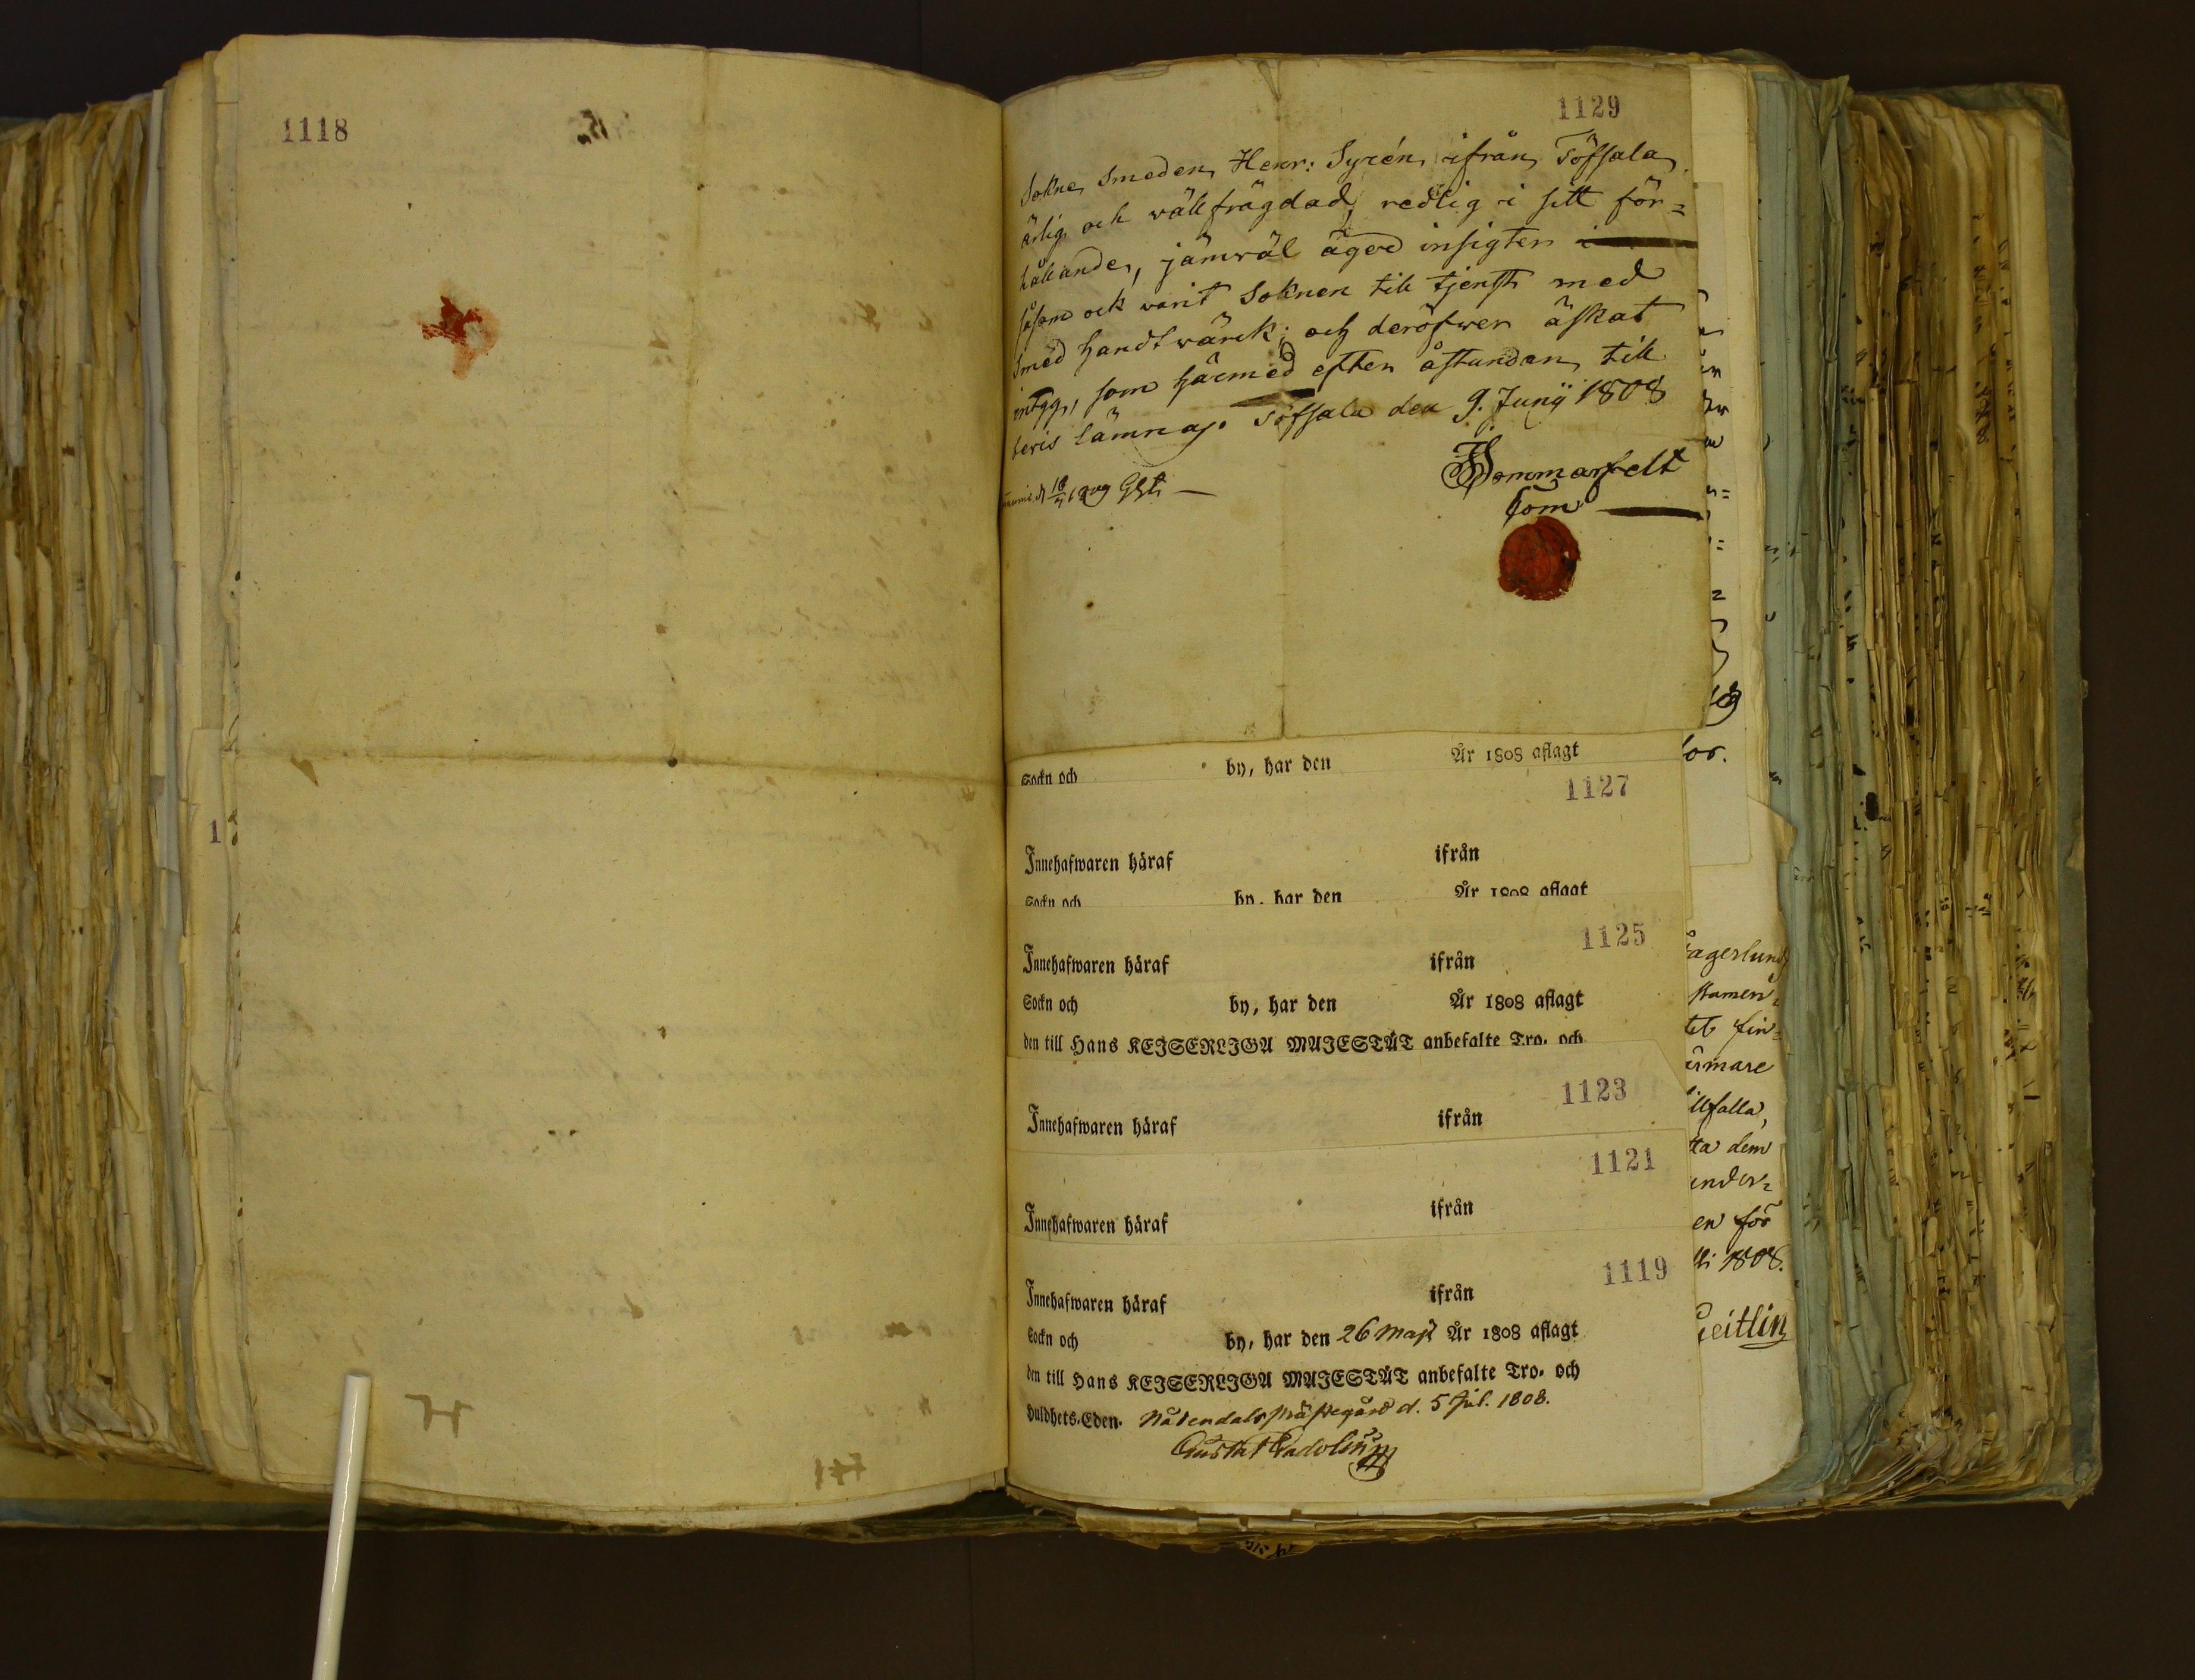 1118
1129
Sokne Smeden Henr: Syrén ifrån Töfsala
ärlig och wälfrägdad, redlig i sitt för=
hållande, jämwäl äger insigter i
såsom ock varit Soknen till tjenst med
Smed handtwärck; och deröfwer äskat
intyg, som härmed efter åstundan till
beris lämnas. Töfsala den 9. Junij 1808
Sommarfelt
Com
År 1808 aflagt
by, har den
Sockn och
1127
Innehafwaren häraf ifrån
Sockn och by, har den År 1808 aflagt
1125
Innehafwaren häraf ifrån
Sockn och by, har den År 1808 aflagt
den till Hans KEJSERLIGA MAJESTÄT anbefalte Tro- och
1123
Innehafwaren häraf ifrån
1121
Innehafwaren häraf ifrån
1119
Innehafwaren häraf ifrån
Sockn och by, har den 26 Maji År 1808 aflagt
den till Hans KEJSERLIGA MAJESTÄT anbefalte Tro- och
Huldhets-Eden. Nådendals Prästegård d. 5 Jul. 1808.
Gustaf
för.
agerlund
tamen
tet fin=
ärmare
illfalla,
tta dem
under=
en för
li 1808.
Geitlin